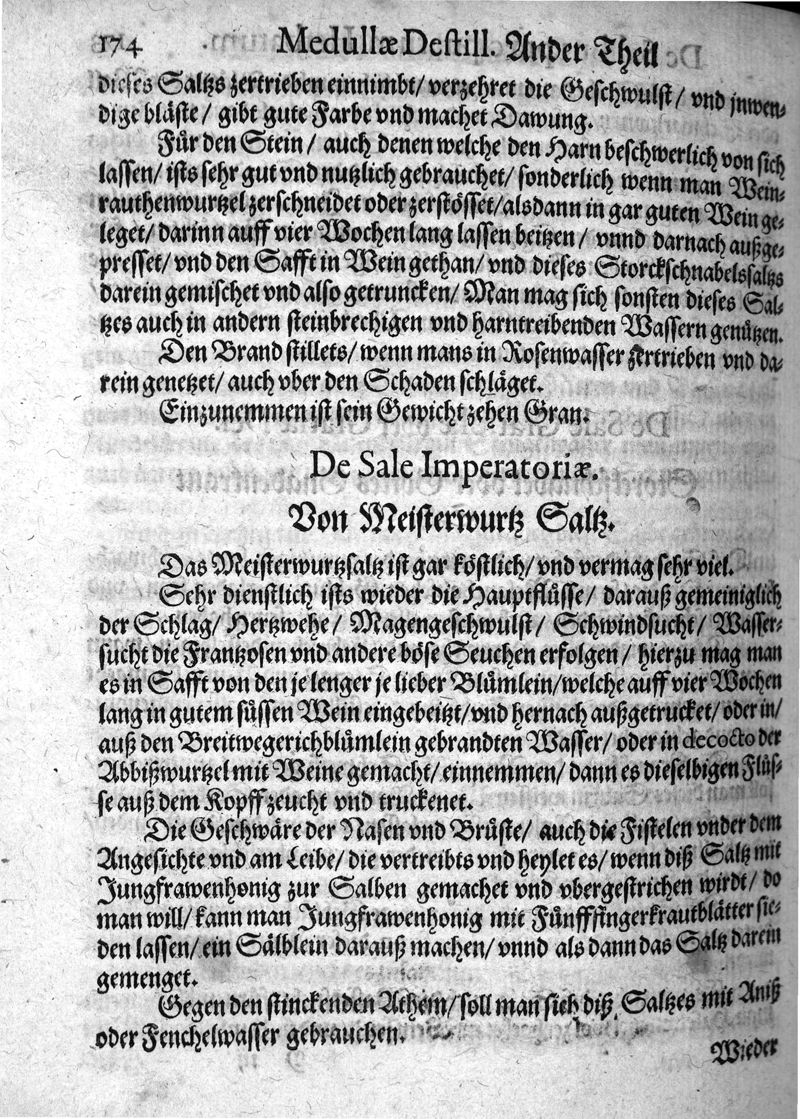 174 Medullæ Destill. Ander Theil
dieses Saltzs zertrieben einnimbt/ verzehret die Geschwulst/ vnd jnwen-
dige bläste/ gibt gute Farbe vnd machet Dawung.
Für den Stein/ auch denen welche den Harn beschwerlich von sich
lassen/ ists sehr gut vnd nutzlich gebrauchet/ sonderlich wenn man Wein-
rauthenwurtzel zerschneidet oder zerstösset/ alsdann in gar guten Wein ge-
leget/ darinn auff vier Wochen lang lassen beitzen/ vnnd darnach außge-
presset/ vnd den Safft in Wein gethan/ vnd dieses Storckschnabelssaltzs
darein gemischet vnd also getruncken/ Man mag sich sonsten dieses Sal-
tzes auch in andern steinbrechigen vnd harntreibenden Wassern genützen.
Den Brand stillets/ wenn mans in Rosenwasser zertrieben vnd da-
rein genetzet/ auch vber den Schaden schläget.
Einzunemmen ist sein Gewicht zehen Gran.
De Sale Imperatoriæ.
Von Meisterwurtz Saltz.
Das Meisterwurtzsaltz ist gar köstlich/ vnd vermag sehr viel.
Sehr dienstlich ists wieder die Hauptflüsse/ darauß gemeiniglich
der Schlag/ Hertzwehe/ Magengeschwulst/ Schwindsucht/ Wasser-
sucht die Frantzosen vnd andere böse Seuchen erfolgen/ hierzu mag man
es in Safft von den je lenger je lieber Blümlein/ welche auff vier Wochen
lang in gutem süssen Wein eingebeitzt/ vnd hernach außgetrucket/ oder in/
auß den Breitwegerichblümlein gebrandten Wasser/ oder in decocto der
Abbißwurtzel mit Weine gemacht/ einnemmen/ dann es dieselbigen Flüs-
se auß dem Kopff zeucht vnd truckenet.
Die Geschwäre der Nasen vnd Brüste/ auch die Fistelen vnder dem
Angesichte vnd am Leibe/ die vertreibts vnd heylet es/ wenn diß Saltz mit
Jungfrawenhonig zur Salben gemachet vnd vbergestrichen wirdt/ do
man will/ kann man Jungfrawenhonig mit Fünffingerkrautblätter sie-
den lassen/ ein Sälblein darauß machen/ vnnd als dann das Saltz darein
gemenget.
Gegen den stinckenden Athem/ soll man sich diß Saltzes mit Aniß
oder Fenchelwasser gebrauchen.
Wieder